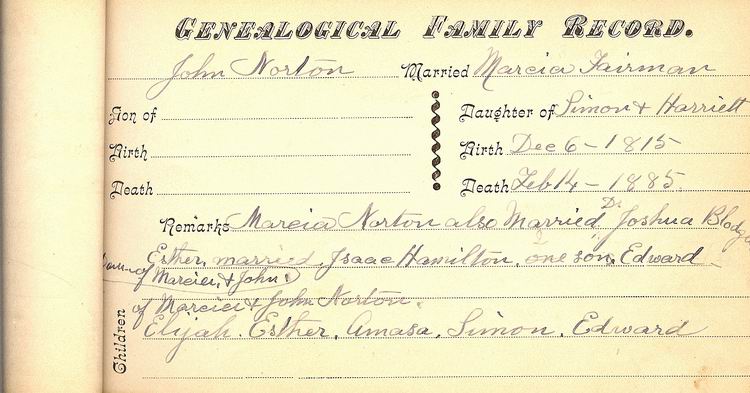 GENEALOGICAL FAMILY RECORD.
John Norton Married Marcia Fairman
Son of Daughter of Simon & Harriett
Birth Birth Dec 6 - 1815
Death Death Feb 14 - 1885
Dr.
Remarks Marcia Norton also Married Joshua
Esther, married, Isaac Hamilton, one son, Edward
of Marcia & John
of Marcia & John Norton.
Children Elijah. Esther, Amasa, Simon, Edward